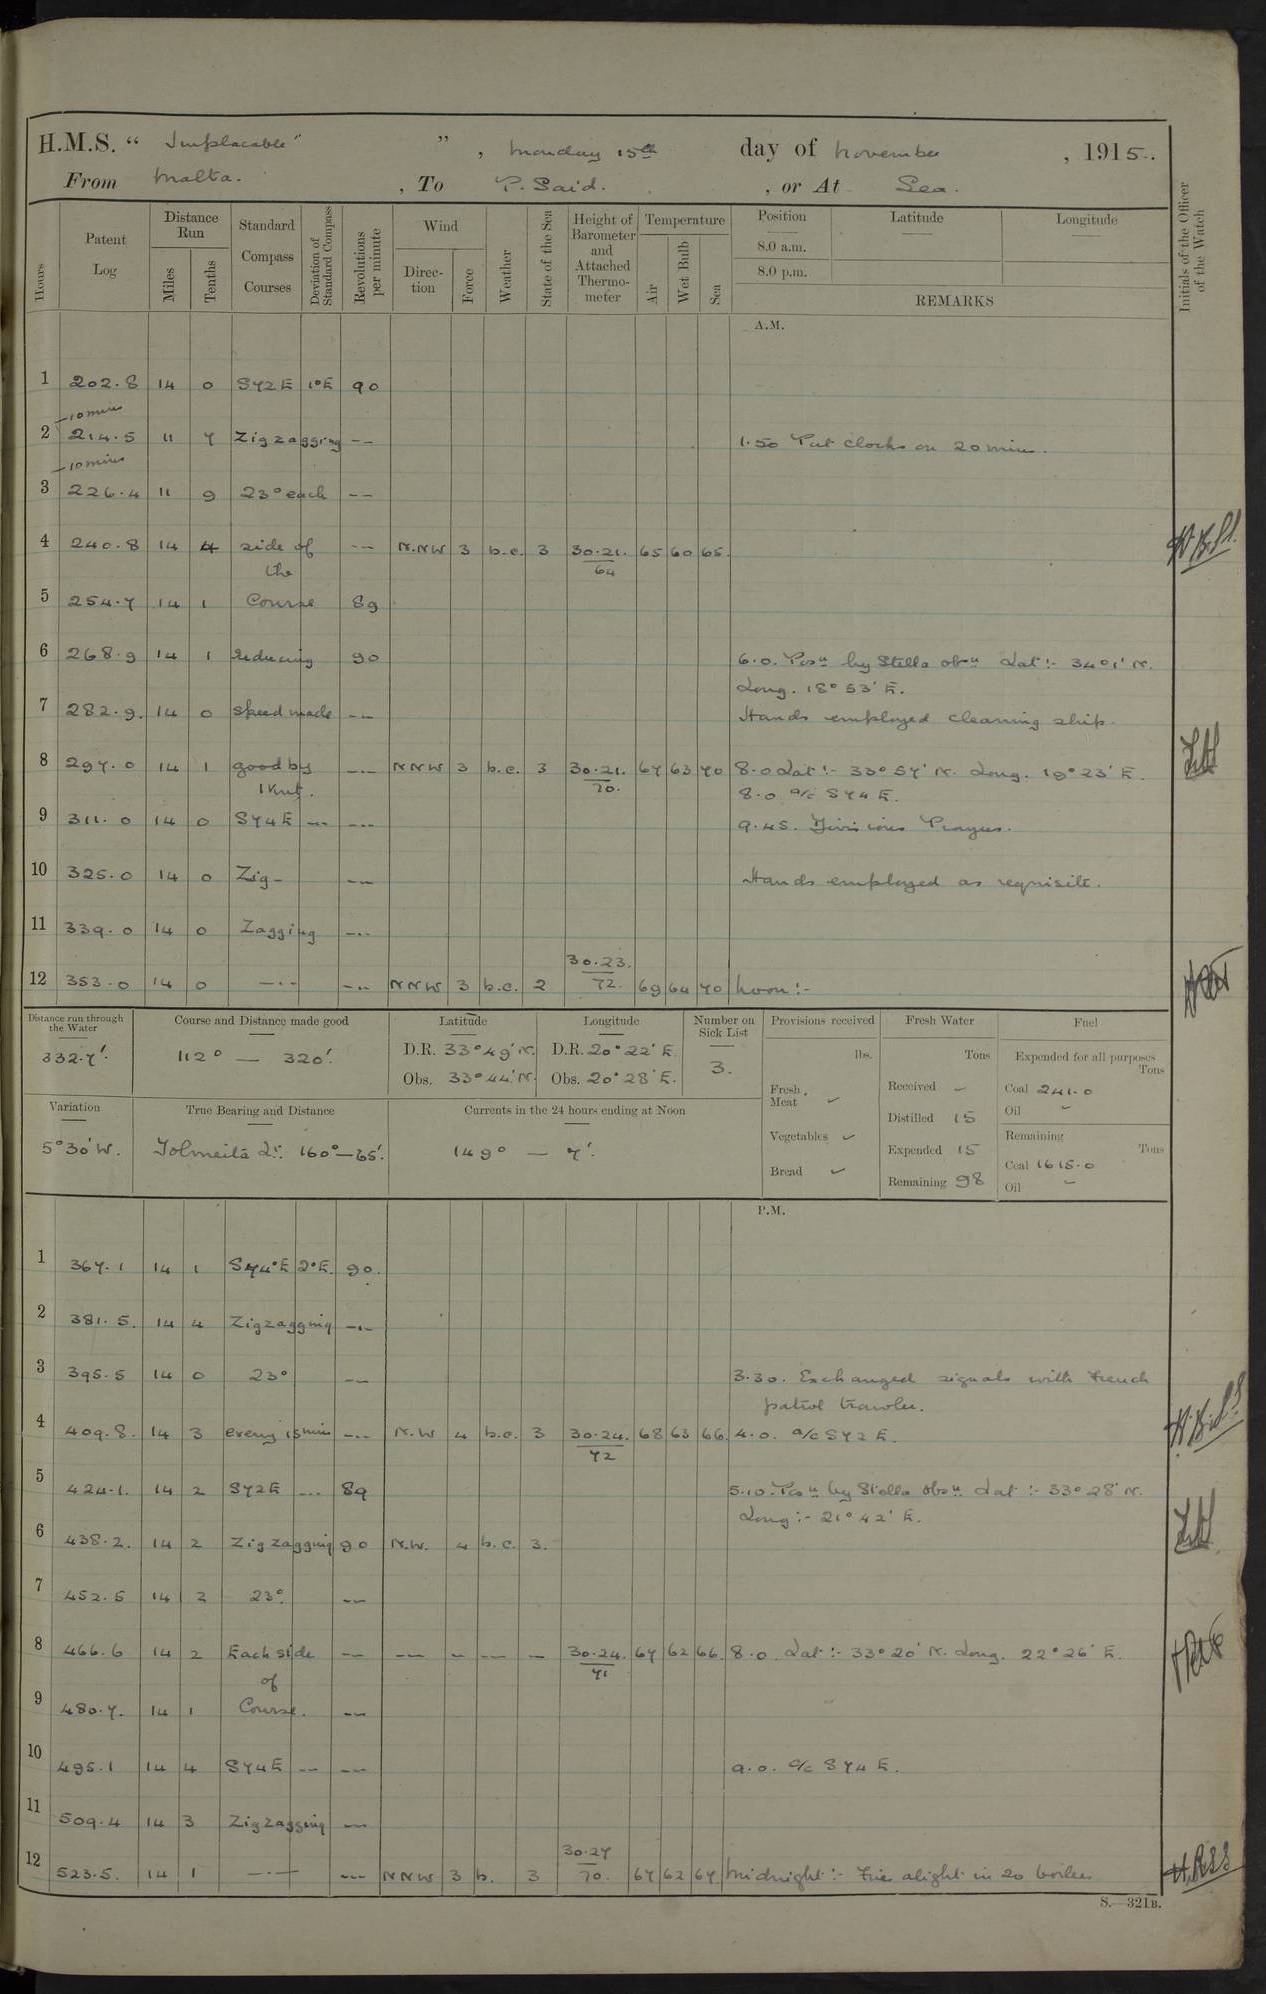 H.M.S. " Implacable" ", Monday 15th day of November, 1915.
From Malta. , To P. Said. , or At Sea.
Hours Patent Log Distance Run Miles Tenths Standard Compass Courses Deviation of Standard Compass Revolutions per minute Wind Direction Force Weather State of the Sea Height of Barometer and Attached Thermometer Temperature Air Wet Bulb Sea Position Latitude Longitude Initials of the Officer of the Watch
8.0 a.m.
8.0 p.m.
REMARKS
A.M.
1 202.8 14 0 S72E 1°E 90
-10 mins
2 214.5 11 7 Zigzagging -- 1.50 Put clocks on 20 mins.
-10 mins
3 226.4 11 9 23° each --
4 240.8 14 4 side of -- N.NW 3 b.c. 3 30.21. 65 60 65.
the 64
5 254.7 14 1 Course 89
6 268.9 14 1 reducing 90 6.0. Posn by Stella obsn Lat:- 34°1' N.
Long. 18° 53' E.
7 282.9. 14 0 speed made -.- Hands employed cleaning ship.
8 297.0 14 1 good by -.- NNW 3 b.c. 3 30.21. 67 63 70 8.0 Lat:- 33° 57' N. Long. 19° 23' E.
1 Knt. 70. 8.0 a/c S74E.
9 311.0 14 0 S74E -.- -.- 9.45. Divisions Prayers.
10 325.0 14 0 Zig- -.- Hands employed as requisite.
11 339.0 14 0 Zagging -.-
30.23.
12 353.0 14 0 -.- -.- NNW 3 b.c. 2 72. 69 64 70 Noon:-
Distance run through the Water Course and Distance made good Latitude Longitude Number on Sick List Provisions received Fresh Water Fuel
332.7'. 112° — 320'. D.R. 33°49' N. D.R. 20°22' E. 3. lbs. Tons Expended for all purposes Tons
Obs. 33°44' N. Obs. 20°28' E. Fresh Meat ✓ Received - Coal 241.0
Oil -
Variation True Bearing and Distance Currents in the 24 hours ending at Noon Distilled 15
5°30' W. Tolmeita Lt. 160°—65'. 149° — 7'. Vegetables ✓ Expended 15 Remaining Tons
Bread ✓ Remaining 98 Coal 1615.0
Oil -
P.M.
1 367.1 14 1 S74°E 2°E. 90.
2 381.5. 14 4 Zigzagging -.-
3 395.5 14 0 23° -- 3.30. Exchanged signals with French
patrol trawler.
4 409.8. 14 3 every 15 mins -.- N.W 4 b.c. 3 30.24. 68 63 66. 4.0. a/c S72E.
72
5 424.1. 14 2 S72E -.- 89 5.10. Posn by Stella obsn Lat:- 33° 28' N.
Long:- 21° 42' E.
6 438.2. 14 2 Zigzagging 90 N.W. 4 b.c. 3.
7 452.5 14 2 23°. --
8 466.6 14 2 Each side -- -- - -- - 30.24. 67 62 66. 8.0. Lat:- 33° 20' N. Long. 22° 26' E.
of 71
9 480.7. 14 1 Course. --
10 495.1 14 4 S74E -- -- 9.0. a/c S74E.
11 509.4 14 3 Zigzagging --
30.27
12 523.5. 14 1 -.- -.- NNW 3 b. 3 70. 67 62 67 Midnight:- Fires alight in 20 boilers
S.—321B.